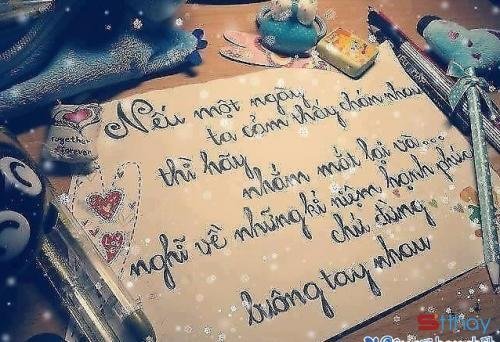 Nếu một ngày
ta cảm thấy chán nhau
thì hãy
nhắm mắt lại và...
nghĩ về những kỉ niệm hạnh phúc
chứ đừng
buông tay nhau
Together
forever
Stthay